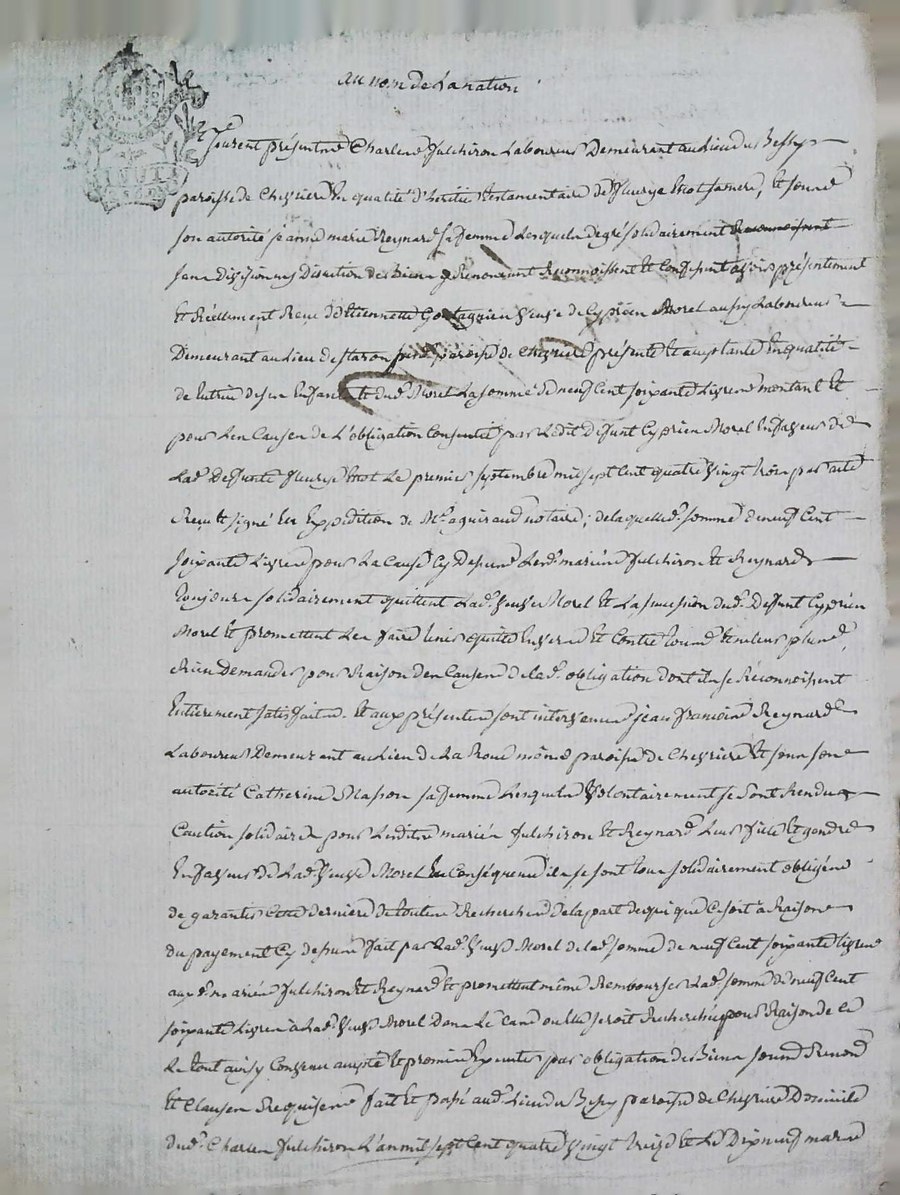 au nom de la nation
furent présents Charles fulchiron Laboureur Demeurant au Lieu du Bessy
paroisse de Chevrieres En qualité d'heritier testamentaire de fleurye Viot sa mere, Et sous
son autorité jeanne marie Reynard sa femme Lesquels de gré solidairement Reconnoissent
sans Division ny Discution de Biens y Renonçant Reconnoissent Et Confessent avoir présentement
Et Réellement Reçu d'Etiennette veuve de Cyprien Morel aussy Laboureur
Demeurant au Lieu de paroisse de Chevrieres présente Et acceptante En qualité
de tutrice de ses Enfants Et dud. Morel La somme de neuf Cent soixante Livres montant Et
pour Les Causes de L'obligation Consentie par Ledit Deffunt Cyprien Morel En faveur de
Lad. Deffunte fleurye Viot Le premier septembre mil sept Cent quatre vingt trois par acte
Reçu Et signé En Expedition de Me. aguiraud notaire; de laquelle d. somme de neuf Cent
soixante Livres pour La Cause Cy Dessus Les d. mariés fulchiron Et Reynard
toujours solidairement quittent Lad. veuve Morel Et La succession dud. Deffunt Cyprien
Morel Et promettent Les faire tenir quittes Envers Et Contre tous Et ne leur plus
Rien Demander pour Raison des Causes de lad. obligation dont ils se Réconnoissent
Entierement satisfaits. Et aux présentes sont intervenus jean françois Reynard
Laboureur Demeurant au Lieu de La Roue même paroisse de Chevrieres Et sous son
autorité Catherine Masson sa femme Lesquels volontairement se sont Rendus
Caution solidaires pour Lesdits mariés fulchiron Et Reynard Leurs fille Et gendre
En faveur de Lad. veuve Morel En Conséquence ils se sont tous solidairement obligés
de garantir Cette derniere de toutes Recherches de la part de qui que Ce soit a Raison
du payement Cy dessus fait par Lad. veuve Morel de lad. somme de neuf Cent soixante Livres
aux d. mariés fulchiron Et Reynard Et promettent même Rembourser Lad. somme de neuf Cent
soixante Livres à Lad. veuve Morel Dans Le Cas ou Elle seroit Recherchée pour Raison de Ce
Le tout ainsy Convenu accepté Et promis Executer par obligation de Biens soumis Renoncé
Et Clauses Requises fait Et passé aud. Lieu du Bessy paroisse de Chevrieres Domicile
dud. Charles fulchiron L'an mil sept Cent quatre vingt treize Et Le Dix neuf mars